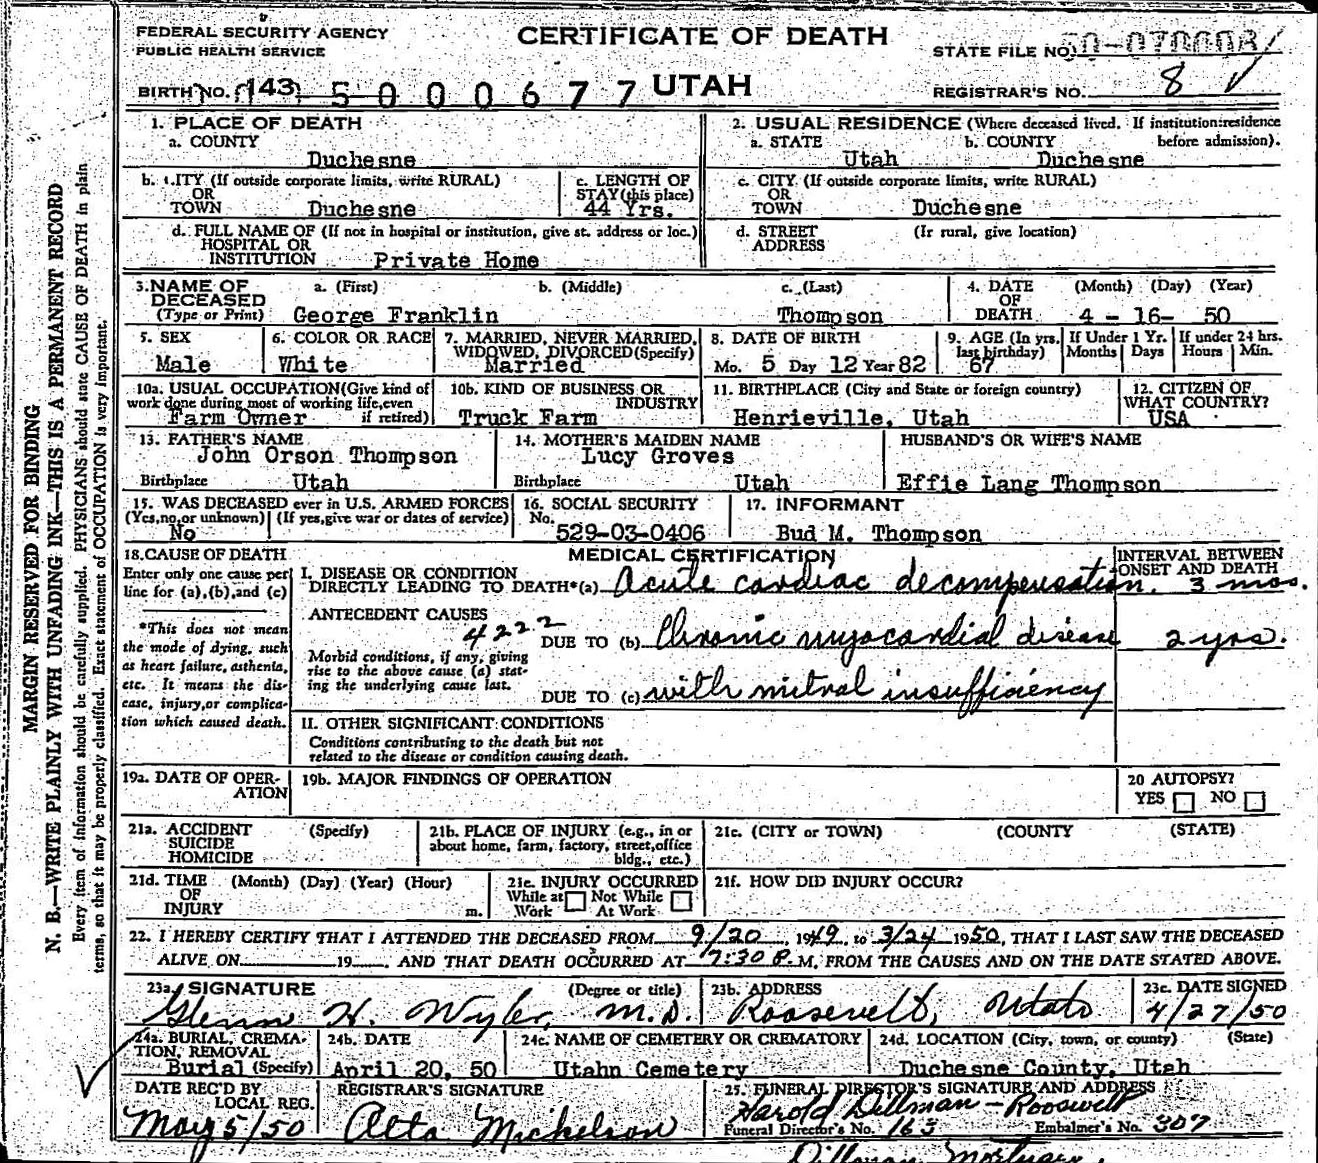 FEDERAL SECURITY AGENCY
PUBLIC HEALTH SERVICE
CERTIFICATE OF DEATH
STATE FILE NO.
BIRTH NO. (143) 5 0 0 0 6 7 7 UTAH
REGISTRAR'S NO. 8
1. PLACE OF DEATH
a. COUNTY
Duchesne
2. USUAL RESIDENCE (Where deceased lived. If institution: residence before admission).
a. STATE Utah b. COUNTY Duchesne
b. CITY (If outside corporate limits, write RURAL)
OR
TOWN Duchesne
c. LENGTH OF STAY (this place)
44 Yrs.
c. CITY (If outside corporate limits, write RURAL)
OR
TOWN Duchesne
d. FULL NAME OF (If not in hospital or institution, give st. address or loc.)
HOSPITAL OR
INSTITUTION Private Home
d. STREET ADDRESS (If rural, give location)
3. NAME OF DECEASED (Type or Print)
a. (First) b. (Middle) c. (Last)
George Franklin Thompson
4. DATE OF DEATH (Month) (Day) (Year)
4 - 16- 50
5. SEX
Male
6. COLOR OR RACE
White
7. MARRIED, NEVER MARRIED, WIDOWED, DIVORCED (Specify)
Married
8. DATE OF BIRTH
Mo. 5 Day 12 Year 82
9. AGE (In yrs. last birthday)
67
If Under 1 Yr. Months Days
If under 24 hrs. Hours Min.
10a. USUAL OCCUPATION (Give kind of work done during most of working life, even if retired)
Farm Owner
10b. KIND OF BUSINESS OR INDUSTRY
Truck Farm
11. BIRTHPLACE (City and State or foreign country)
Henrieville, Utah
12. CITIZEN OF WHAT COUNTRY?
USA
13. FATHER'S NAME
John Orson Thompson
Birthplace Utah
14. MOTHER'S MAIDEN NAME
Lucy Groves
Birthplace Utah
HUSBAND'S OR WIFE'S NAME
Effie Lang Thompson
15. WAS DECEASED ever in U.S. ARMED FORCES
(Yes, no, or unknown) (If yes, give war or dates of service)
No
16. SOCIAL SECURITY No.
529-03-0406
17. INFORMANT
Bud M. Thompson
18. CAUSE OF DEATH
Enter only one cause per line for (a), (b), and (c)
MEDICAL CERTIFICATION
INTERVAL BETWEEN ONSET AND DEATH
I. DISEASE OR CONDITION
DIRECTLY LEADING TO DEATH*(a) Acute cardiac decompensation. 3 mos.
*This does not mean the mode of dying, such as heart failure, asthenia, etc. It means the disease, injury, or complication which caused death.
ANTECEDENT CAUSES
4222
Morbid conditions, if any, giving rise to the above cause (a) stating the underlying cause last.
DUE TO (b) Chronic myocardial disease 2 yrs.
DUE TO (c) with mitral insufficiency
II. OTHER SIGNIFICANT CONDITIONS
Conditions contributing to the death but not related to the disease or condition causing death.
19a. DATE OF OPERATION
19b. MAJOR FINDINGS OF OPERATION
20 AUTOPSY?
YES NO
21a. ACCIDENT SUICIDE HOMICIDE (Specify)
21b. PLACE OF INJURY (e.g., in or about home, farm, factory, street, office bldg., etc.)
21c. (CITY or TOWN) (COUNTY) (STATE)
21d. TIME OF INJURY (Month) (Day) (Year) (Hour) m.
21e. INJURY OCCURRED
While at Work Not While At Work
21f. HOW DID INJURY OCCUR?
22. I HEREBY CERTIFY THAT I ATTENDED THE DECEASED FROM 9/20, 1949, to 3/24 1950, THAT I LAST SAW THE DECEASED
ALIVE ON 19, AND THAT DEATH OCCURRED AT 7:30 P. M, FROM THE CAUSES AND ON THE DATE STATED ABOVE.
23a. SIGNATURE (Degree or title)
Glenn H. Wyler, M.D.
23b. ADDRESS
Roosevelt, Utah
23c. DATE SIGNED
4/27/50
24a. BURIAL, CREMATION, REMOVAL (Specify)
Burial
24b. DATE
April 20, 50
24c. NAME OF CEMETERY OR CREMATORY
Utahn Cemetery
24d. LOCATION (City, town, or county) (State)
Duchesne County, Utah
DATE REC'D BY LOCAL REG.
May 5/50
REGISTRAR'S SIGNATURE
Alta Mickelson
25. FUNERAL DIRECTOR'S SIGNATURE AND ADDRESS
Harold Dillman - Roosevelt
Funeral Director's No. 163 Embalmer's No. 307
Dillman Mortuary
MARGIN RESERVED FOR BINDING
N. B.—WRITE PLAINLY WITH UNFADING INK—THIS IS A PERMANENT RECORD
Every item of information should be carefully supplied. PHYSICIANS should state CAUSE OF DEATH in plain
terms, so that it may be properly classified. Exact statement of OCCUPATION is very important.